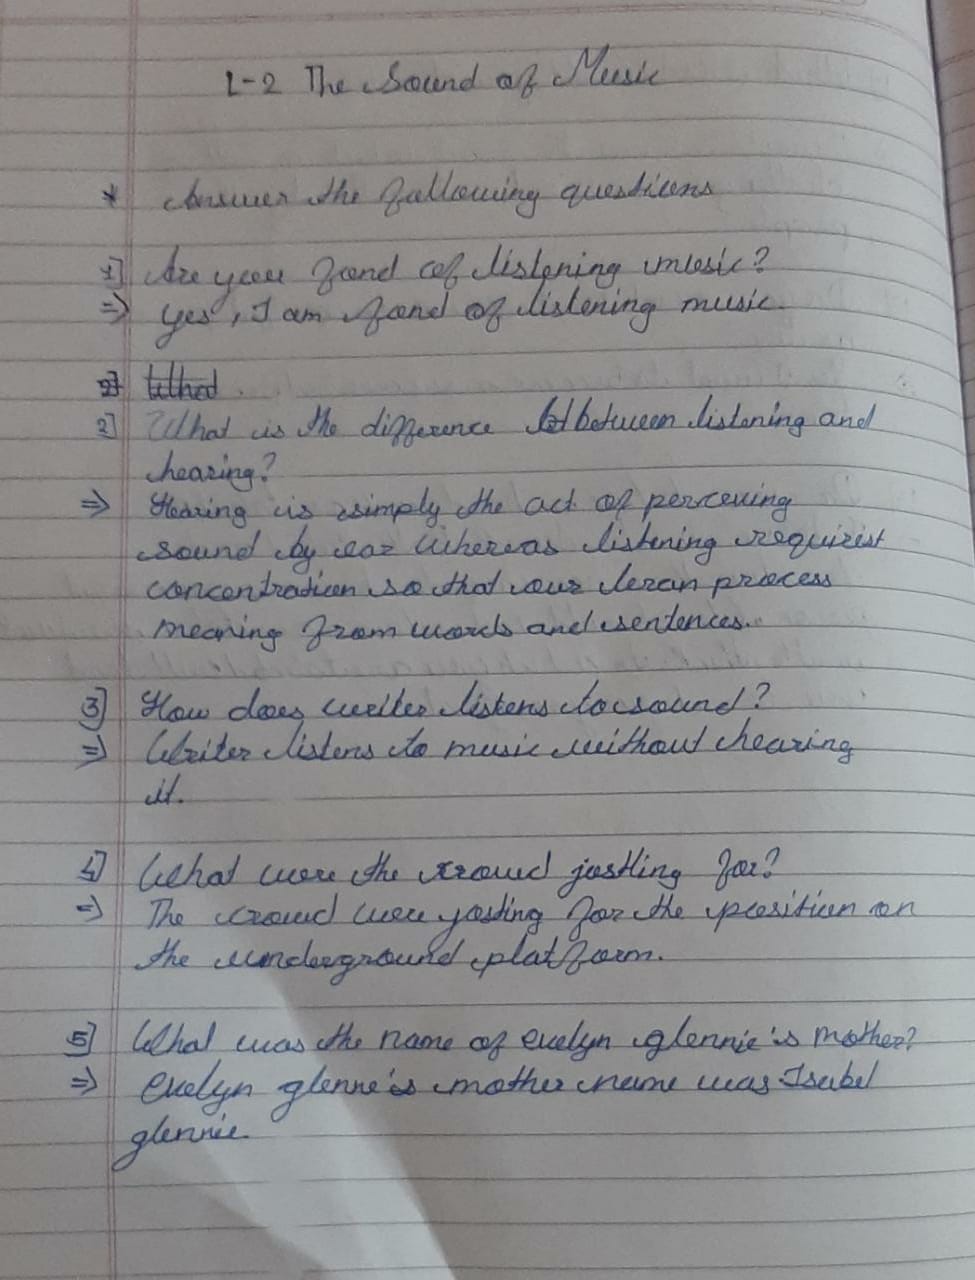 L-2 The Sound of Music
* Answer the following questions
1] Are you fond of listening music?
⇒ Yes, I am fond of listening music.
2]
2] What is the difference between listening and
hearing?
⇒ Hearing is simply the act of perceving
sound by ear whereas listening requirist
concentration so that our
process
meaning from words and sentences.
3] How does writer listens to sound?
⇒ Writer listens to music without hearing
it.
4] What were the crowd jostling for?
⇒ The crowd were josting for the position on
the underground platform.
5] What was the name of evelyn glennie's mother?
⇒ evelyn glenne's mother name was Isabel
glennie.